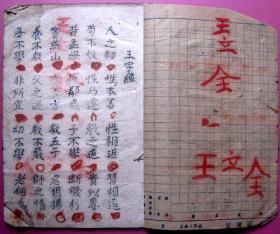 王
三字經
人之初 性本善 性相近 習相遠
苟不教 性乃遷 教之道 貴以專
昔孟母 擇鄰處 子不學 斷機杼
竇燕山 有義方 教五子 名俱揚
養不教 父之過 教不嚴 師之惰
子不學 非所宜 幼不學 老何為
王立
全
王立全